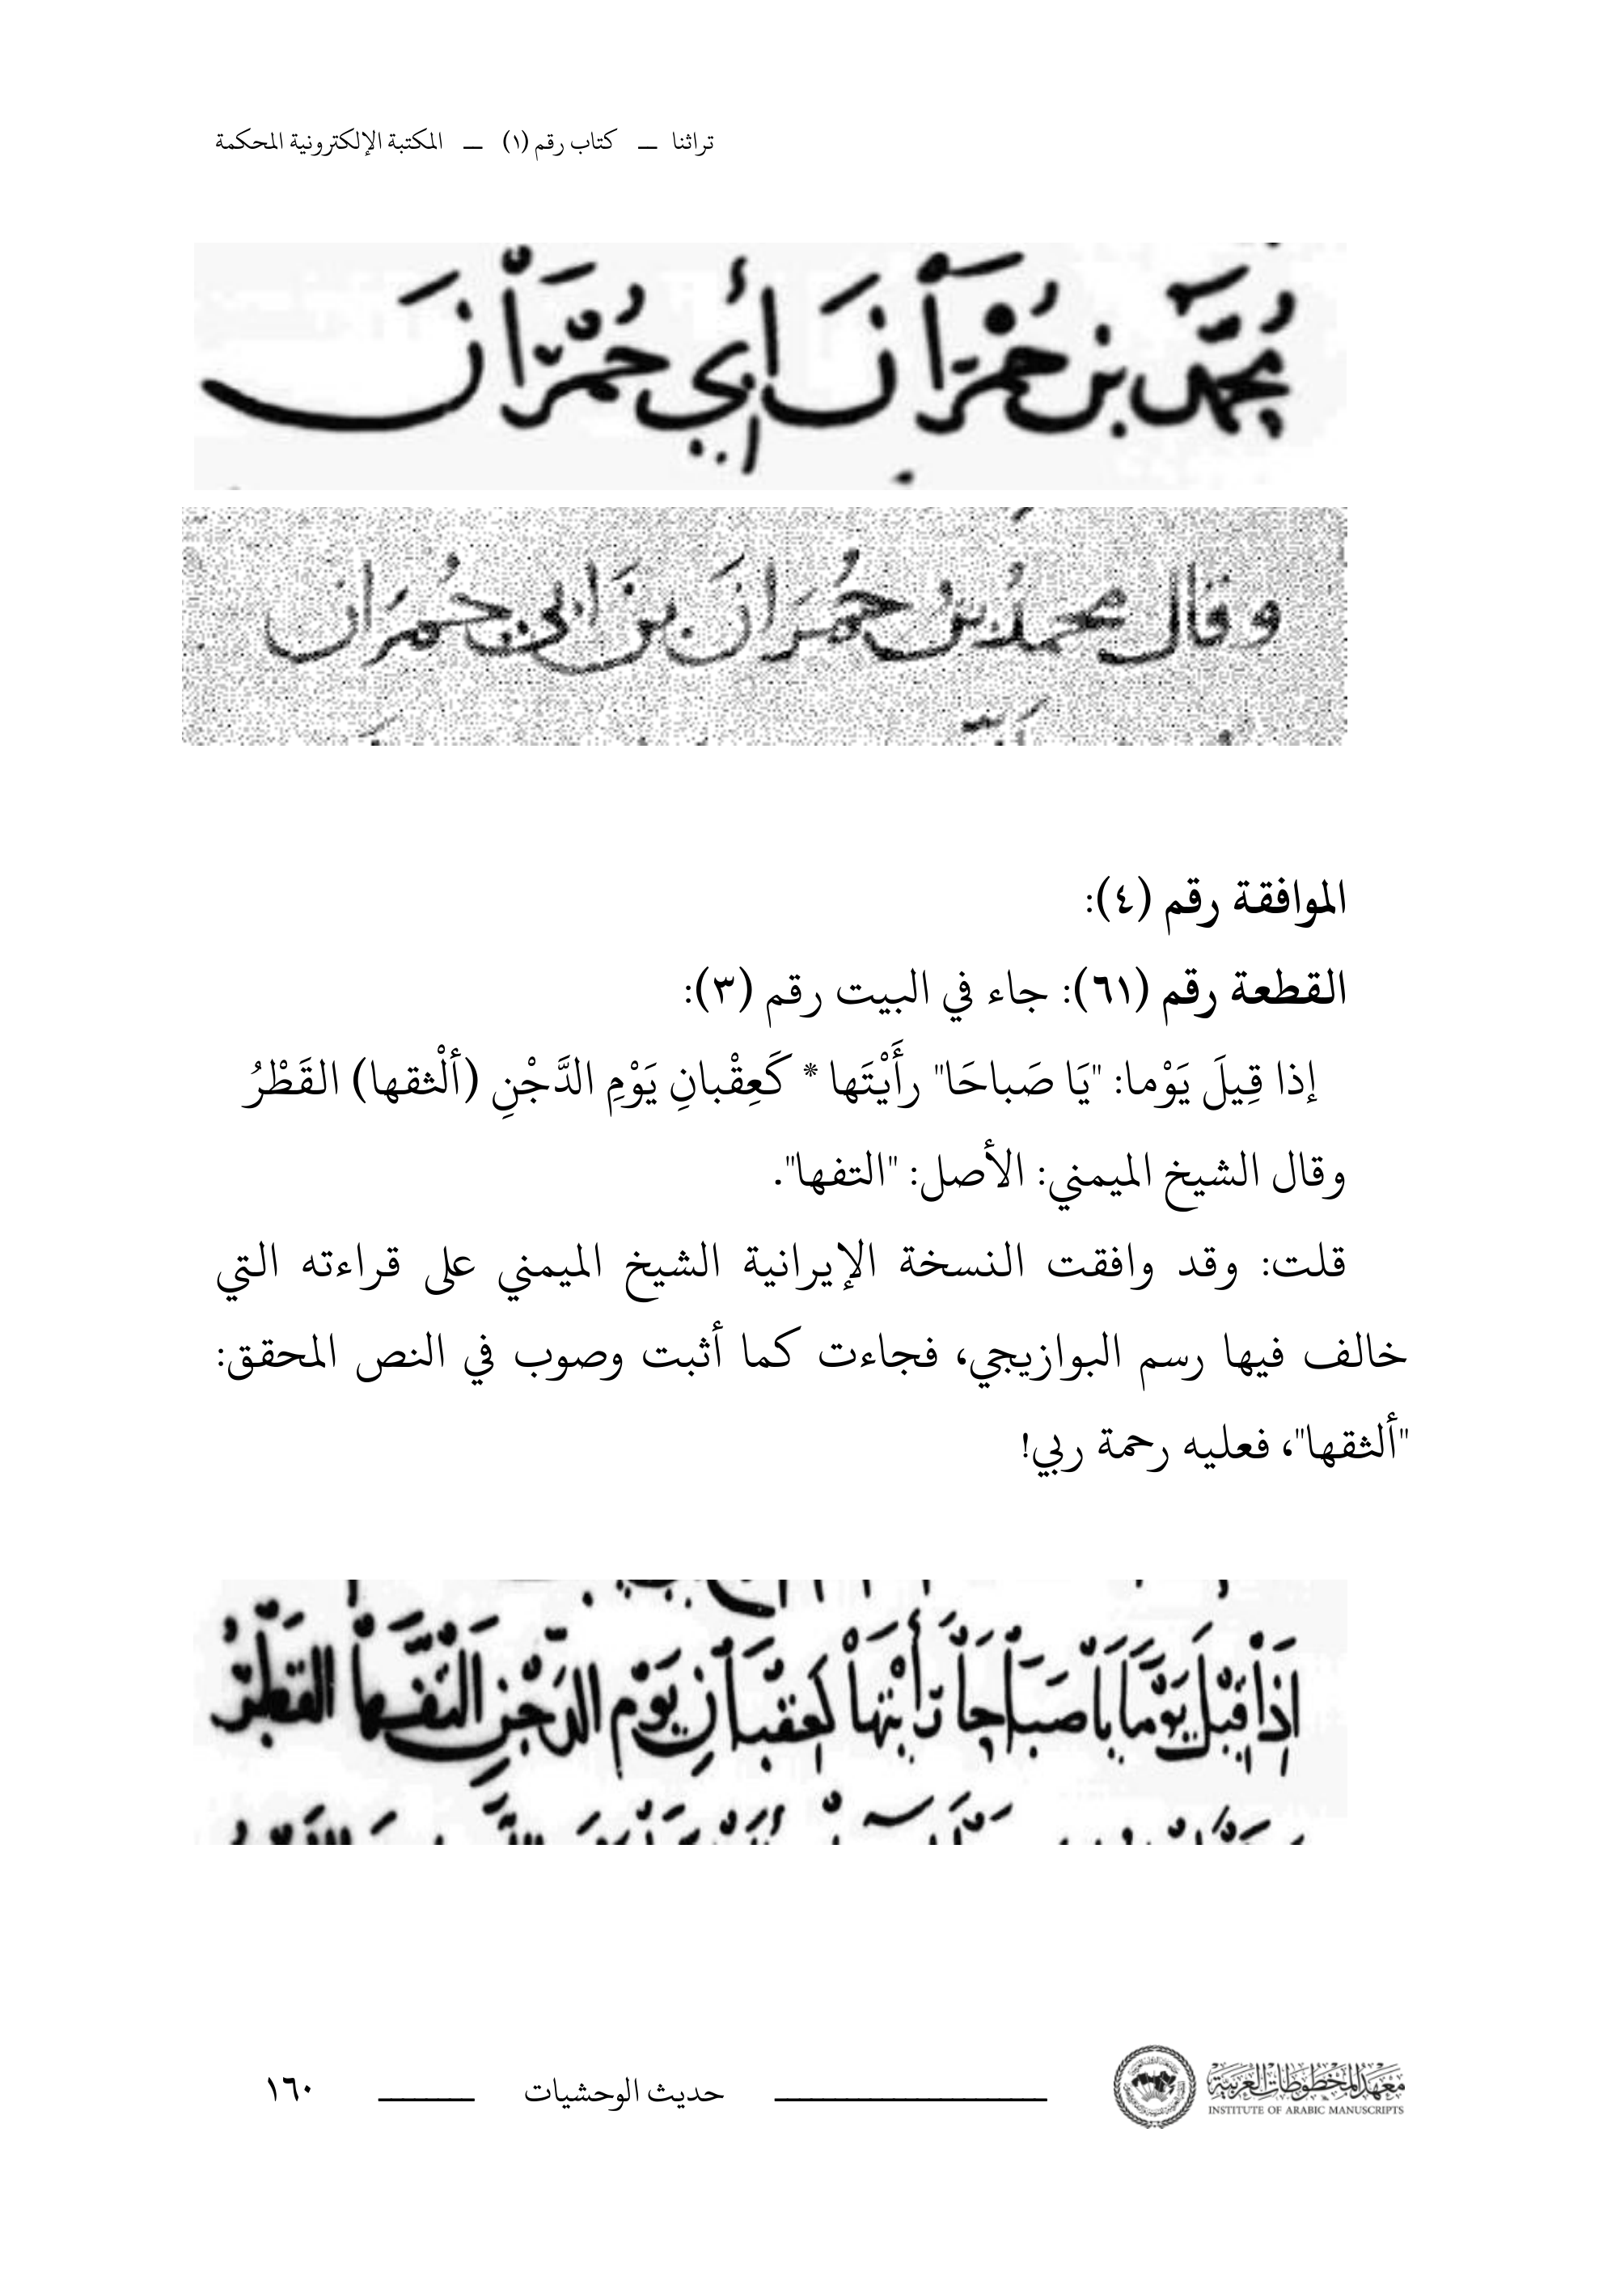 تراثنا — كتاب رقم (١) — المكتبة الإلكترونية المحكمة
محمد بن حمران أبي حمران
وقال محمد بن حمران بن ابي حمران
الموافقة رقم (٤):
القطعة رقم (٦١): جاء في البيت رقم (٣):
إذا قِيلَ يَوْما: "يَا صَباحَا" رأَيْتَها * كَعِقْبانِ يَوْمِ الدَّجْنِ (ألْثقها) القَطْرُ
وقال الشيخ الميمني: الأصل: "التفها".
قلت: وقد وافقت النسخة الإيرانية الشيخ الميمني على قراءته التي
خالف فيها رسم البوازيجي، فجاءت كما أثبت وصوب في النص المحقق:
"ألثقها"، فعليه رحمة ربي!
اذا قيل يوما يا صباحا رأيتها كعقبان يوم الدجن التفها القطر
معهد المخطوطات العربية
INSTITUTE OF ARABIC MANUSCRIPTS
حديث الوحشيات
١٦٠